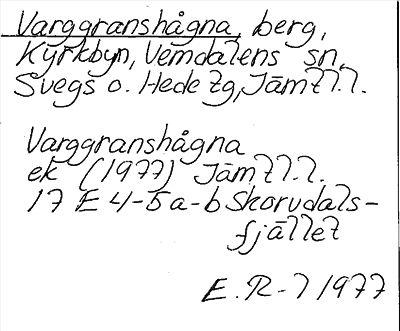 Varggranshågna, berg,
Kyrkbyn, Vemdalens sn,
Svegs o. Hede tg, Jämtl.l.
Varggranshågna
ek (1977) Jämtl.l.
17 E 4-5 a-b Skorvdals-
fjället
E. R-l 1977